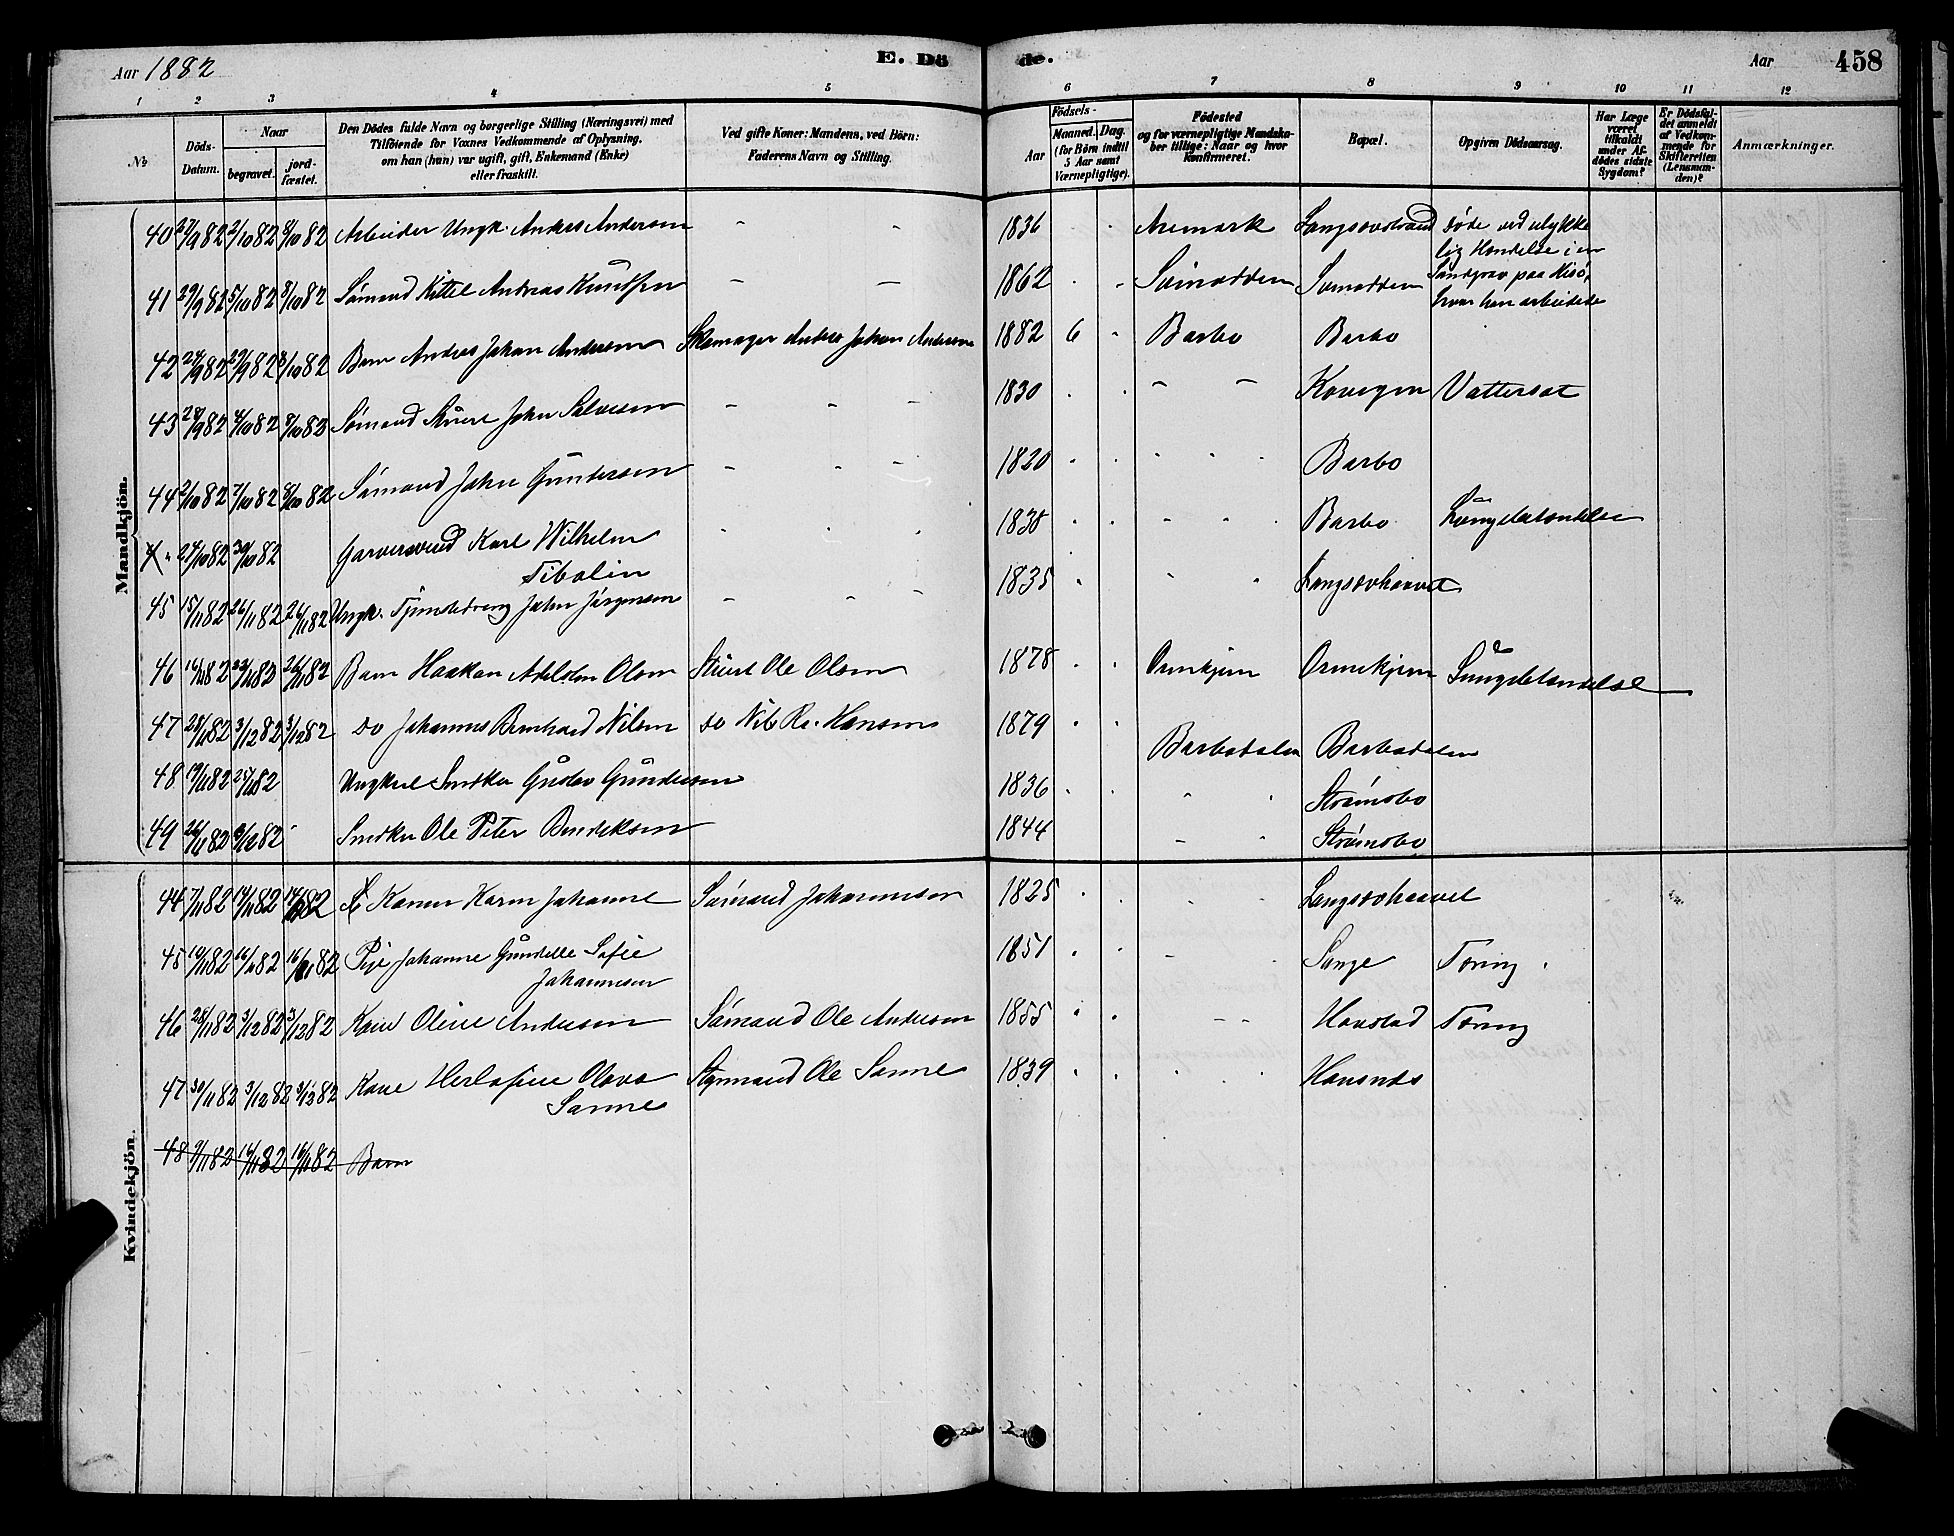 Aar 1882
E. Dö
de.
Aar
458
1 2 3 4 5 6 7 8 9 10 11 12
No
Döds-Datum.
Naar
begravet.
jord-fæstet.
Den Dödes fulde Navn og borgerlige Stilling (Næringsvei) med
Tilföiende for Voxnes Vedkommende af Oplysning,
om han (hun) var ugift, gift, Enkemand (Enke)
eller fraskilt.
Ved gifte Koner: Mandens, ved Börn:
Faderens Navn og Stilling.
Födsels-
Aar
Maaned. Dag.
(for Börn indtil
5 Aar samt
Værnepligtige).
Födested
og for værnepligtige Mandska-
ber tillige: Naar og hvor
konfirmeret.
Bopæl.
Opgiven Dödsaarsag.
Har Læge
været
tilkaldt
under Af-
dödes sidste
Sygdom?
Er Dödsfal-
det anmeldt
af Vedkom-
mende for
Skifteretten
(Lensman-
den)?
Anmærkninger.
Mandkjön.
40 27/9 82 2/10 82 8/10 82 Arbeider Ungk. Anders Andersen - 1836 Aremark Langsævstrand Døde ved ulykke
lig Hændelse i en
Sandgrav paa Hisö,
hvor han arbeidede
41 29/9 82 5/10 82 8/10 82 Sømand Kittel Andreas Knudsen - - 1862 Songe
42 24/9 82 29/9 82 8/10 82 Barn Andreas Johan Andersen Skomager Anders Johan Andersen 1882 6 - Barbo Barbo
43 28/9 82 4/10 82 8/10 82 Sømand Stuert John Salvesen - - - 1830 - - Vattersot
44 2/10 82 7/10 82 8/10 82 Sømand John Gundersen - - - 1820 Barbo
24/10 82 30/10 82 Garversvend Karl Wilhelm
Tibolin 1838 Barbo Lungebetændelse
45 15/11 82 26/11 82 26/11 82 Ungk. Tjenestedreng John Jörgensen - - - 1835 Langsævhaavet
46 16/11 82 26/11 82 Barn Haakon Adelsten Olsen Stuert Ole Olsen 1878 Lungebetændelse
47 28/11 82 3/12 82 3/12 82 do Johannes Bernhard Nilsen do 1879 Barbodalen Barbodalen
48 19/11 82 25/11 82 Ungkarl Snedker Gustav Gundersen 1836 Strømsbo
49 Snedker Ole Peter Bendiksen 1844 - Strømsbo
Kvindekjön.
44 7/11 82 14/11 82 Konen Karen Johanne Sømand Johannesen 1825 Langsævhaavet
45 10/11 82 16/11 82 16/11 82 Pige Johanne Gundelle Sofie
Johannesen 1851 - Songe Tæring
46 28/11 82 3/12 82 3/12 82 Kone Oline Andersen Sømand Ole Andersen 1855 - - Havstad Tæring
47 30/11 82 3/12 82 3/12 82 Kone Olava
Sanne Styrmand Ole Sanne 1839
48 9/11 82 16/11 82 16/11 82 Barn